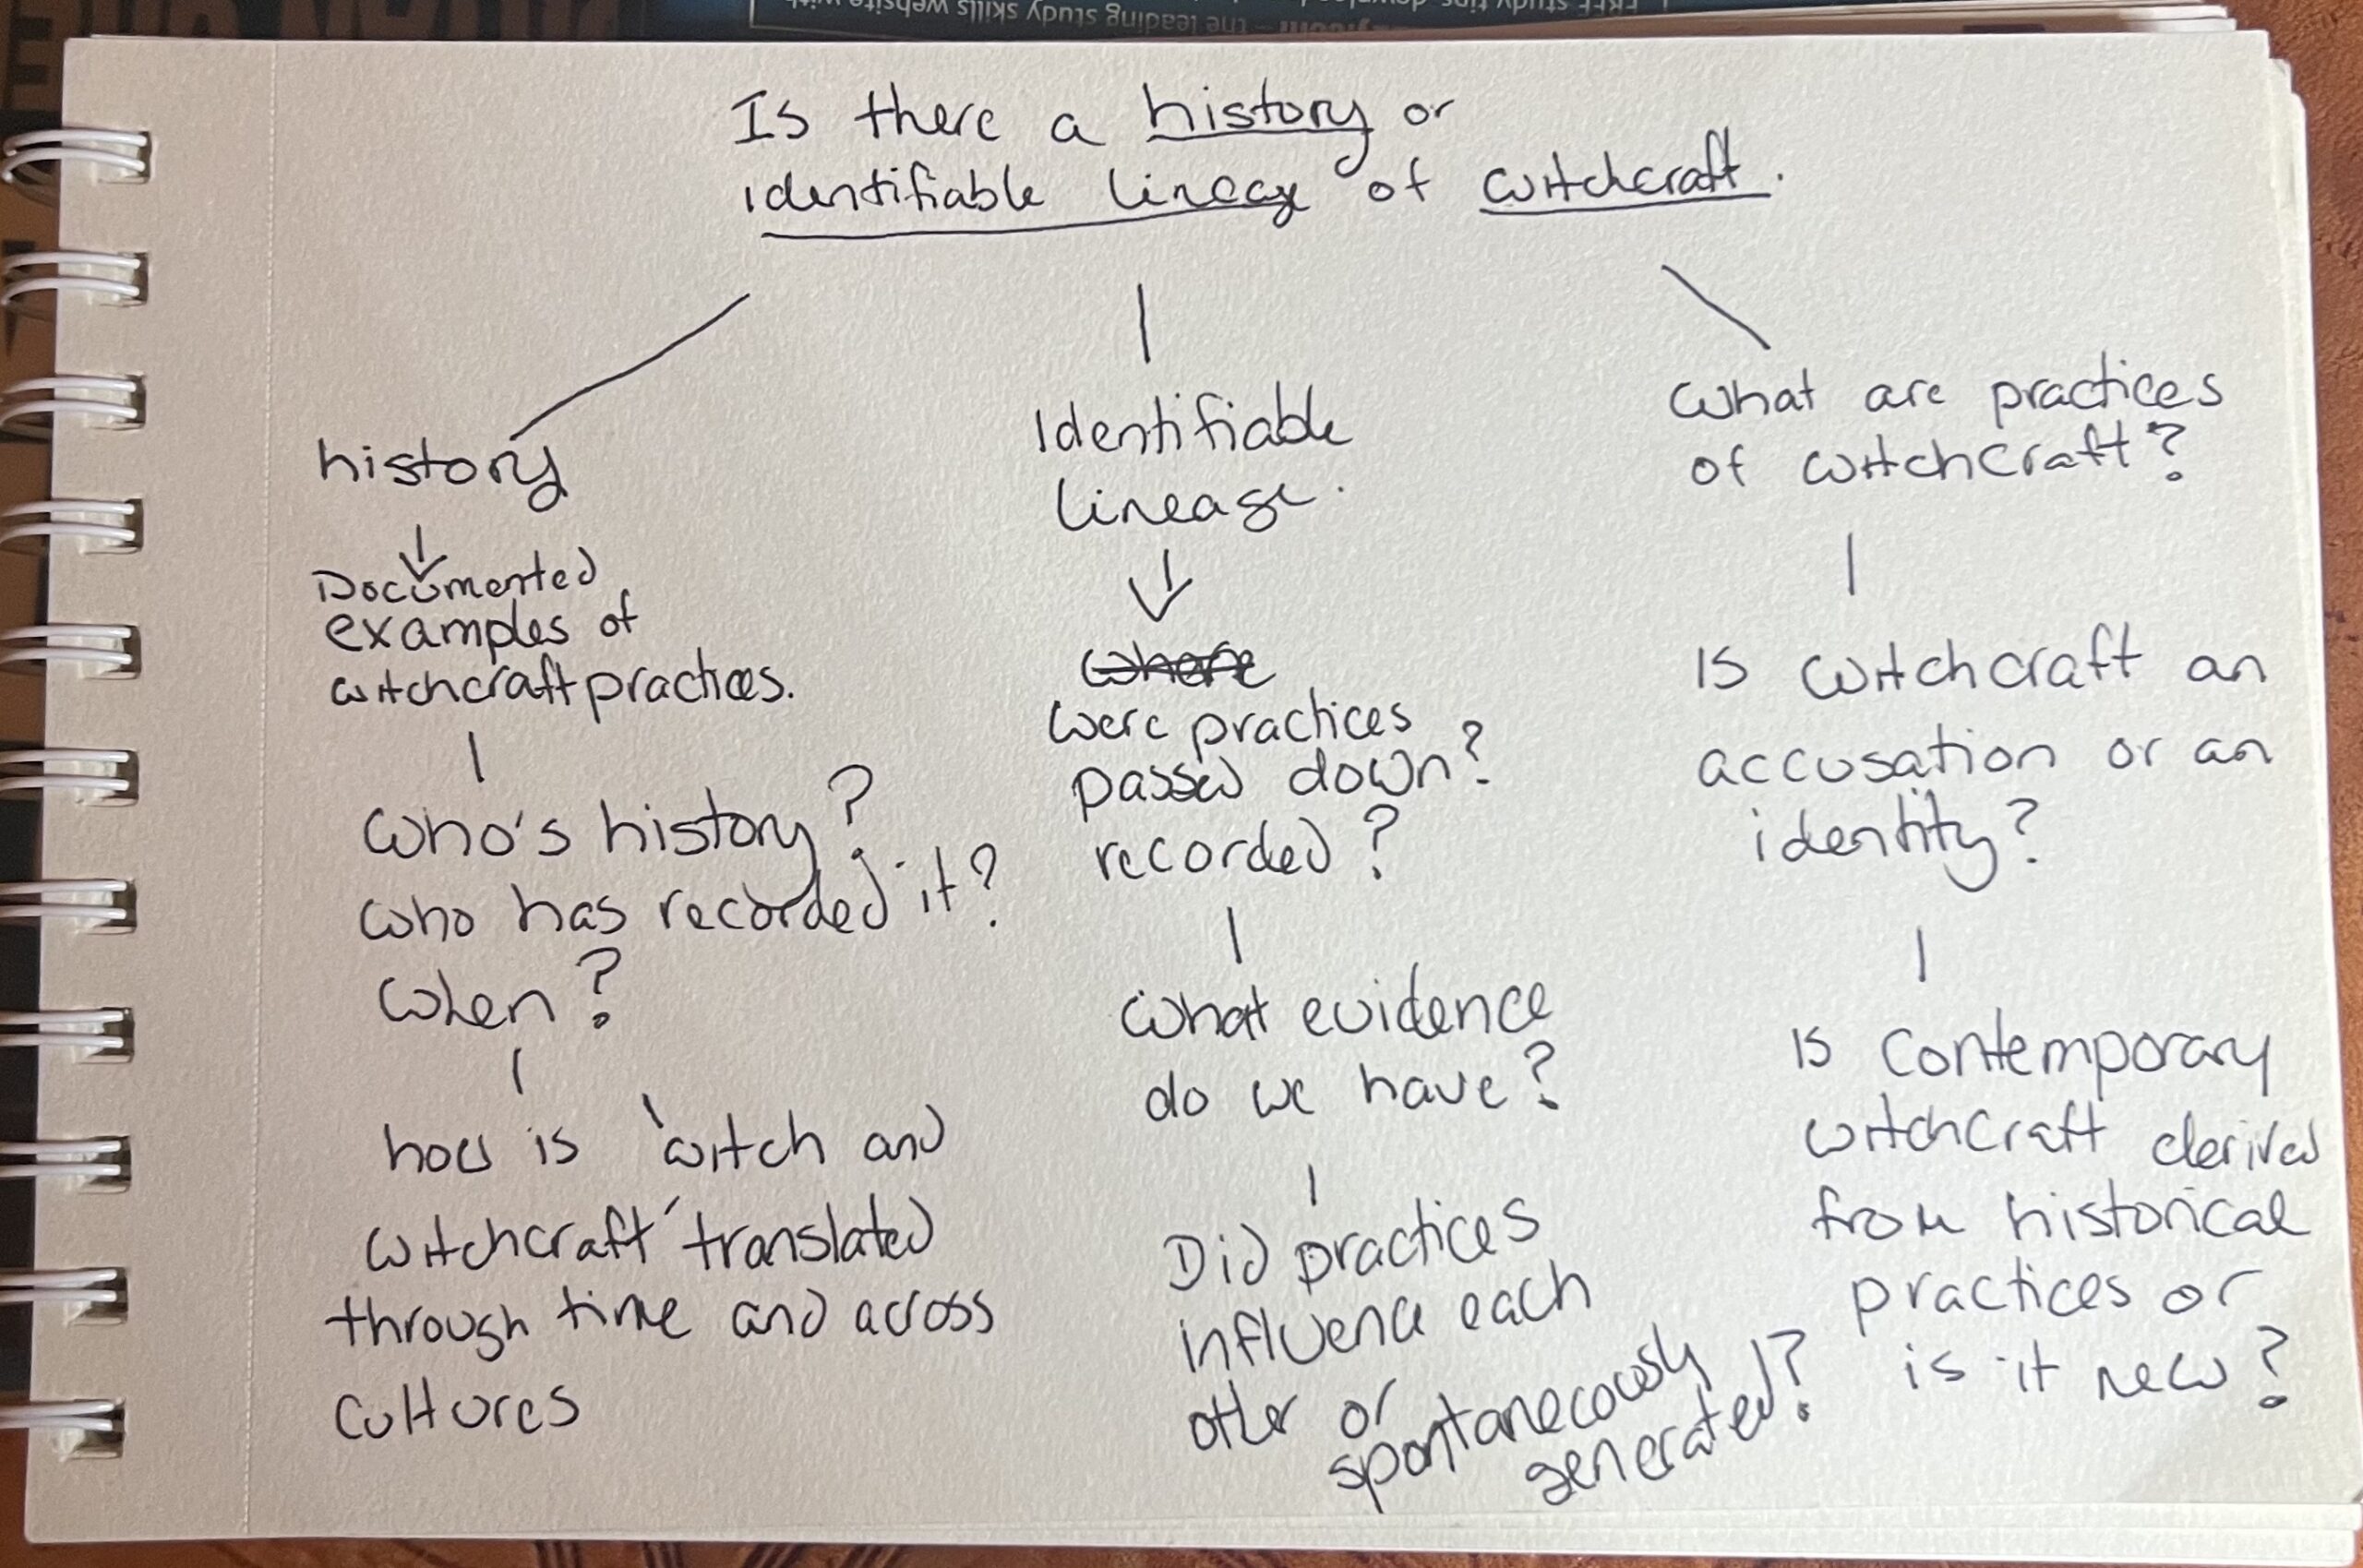 FREE study tips downloa
– the leading study skills website with
Is there a history or
identifiable lineage of witchcraft.
history
Documented
examples of
witchcraft practices.
Who's history?
who has recorded it?
When?
how is 'witch and
witchcraft' translated
through time and across
cultures
Identifiable
lineage.
where
Were practices
passed down?
recorded?
What evidence
do we have?
Did practices
influence each
other or
spontaneously
generated?
What are practices
of witchcraft?
Is witchcraft an
accusation or an
identity?
Is contemporary
witchcraft derived
from historical
practices or
is it new?